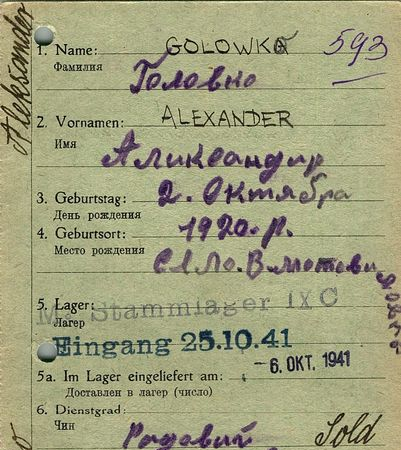 Aleksander
1. Name: GOLOWKO 593
Фамилия Головко
2. Vornamen: ALEXANDER
Имя Александир
3. Geburtstag: 2. Октября
День рождения
4. Geburtsort: 1920.р.
Место рождения
Село.
5. Lager: M. Stammlager IX C
Лагерь
Eingang 25.10.41
-6. ОКТ. 1941
5a. Im Lager eingeliefert am:
Доставлен в лагер (число)
6. Dienstgrad: Sold
Чин Радовий